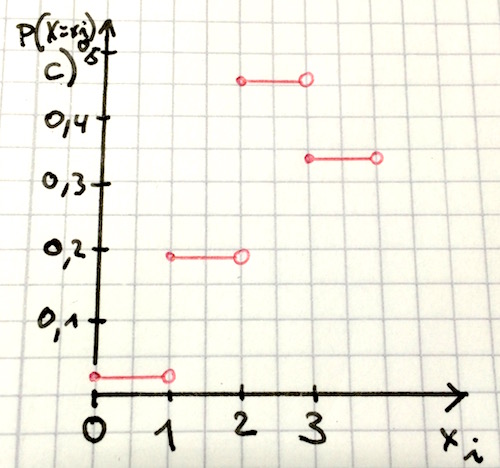 P(X=xi)
c) 5
0,4
0,3
0,2
0,1
0 1 2 3 xi